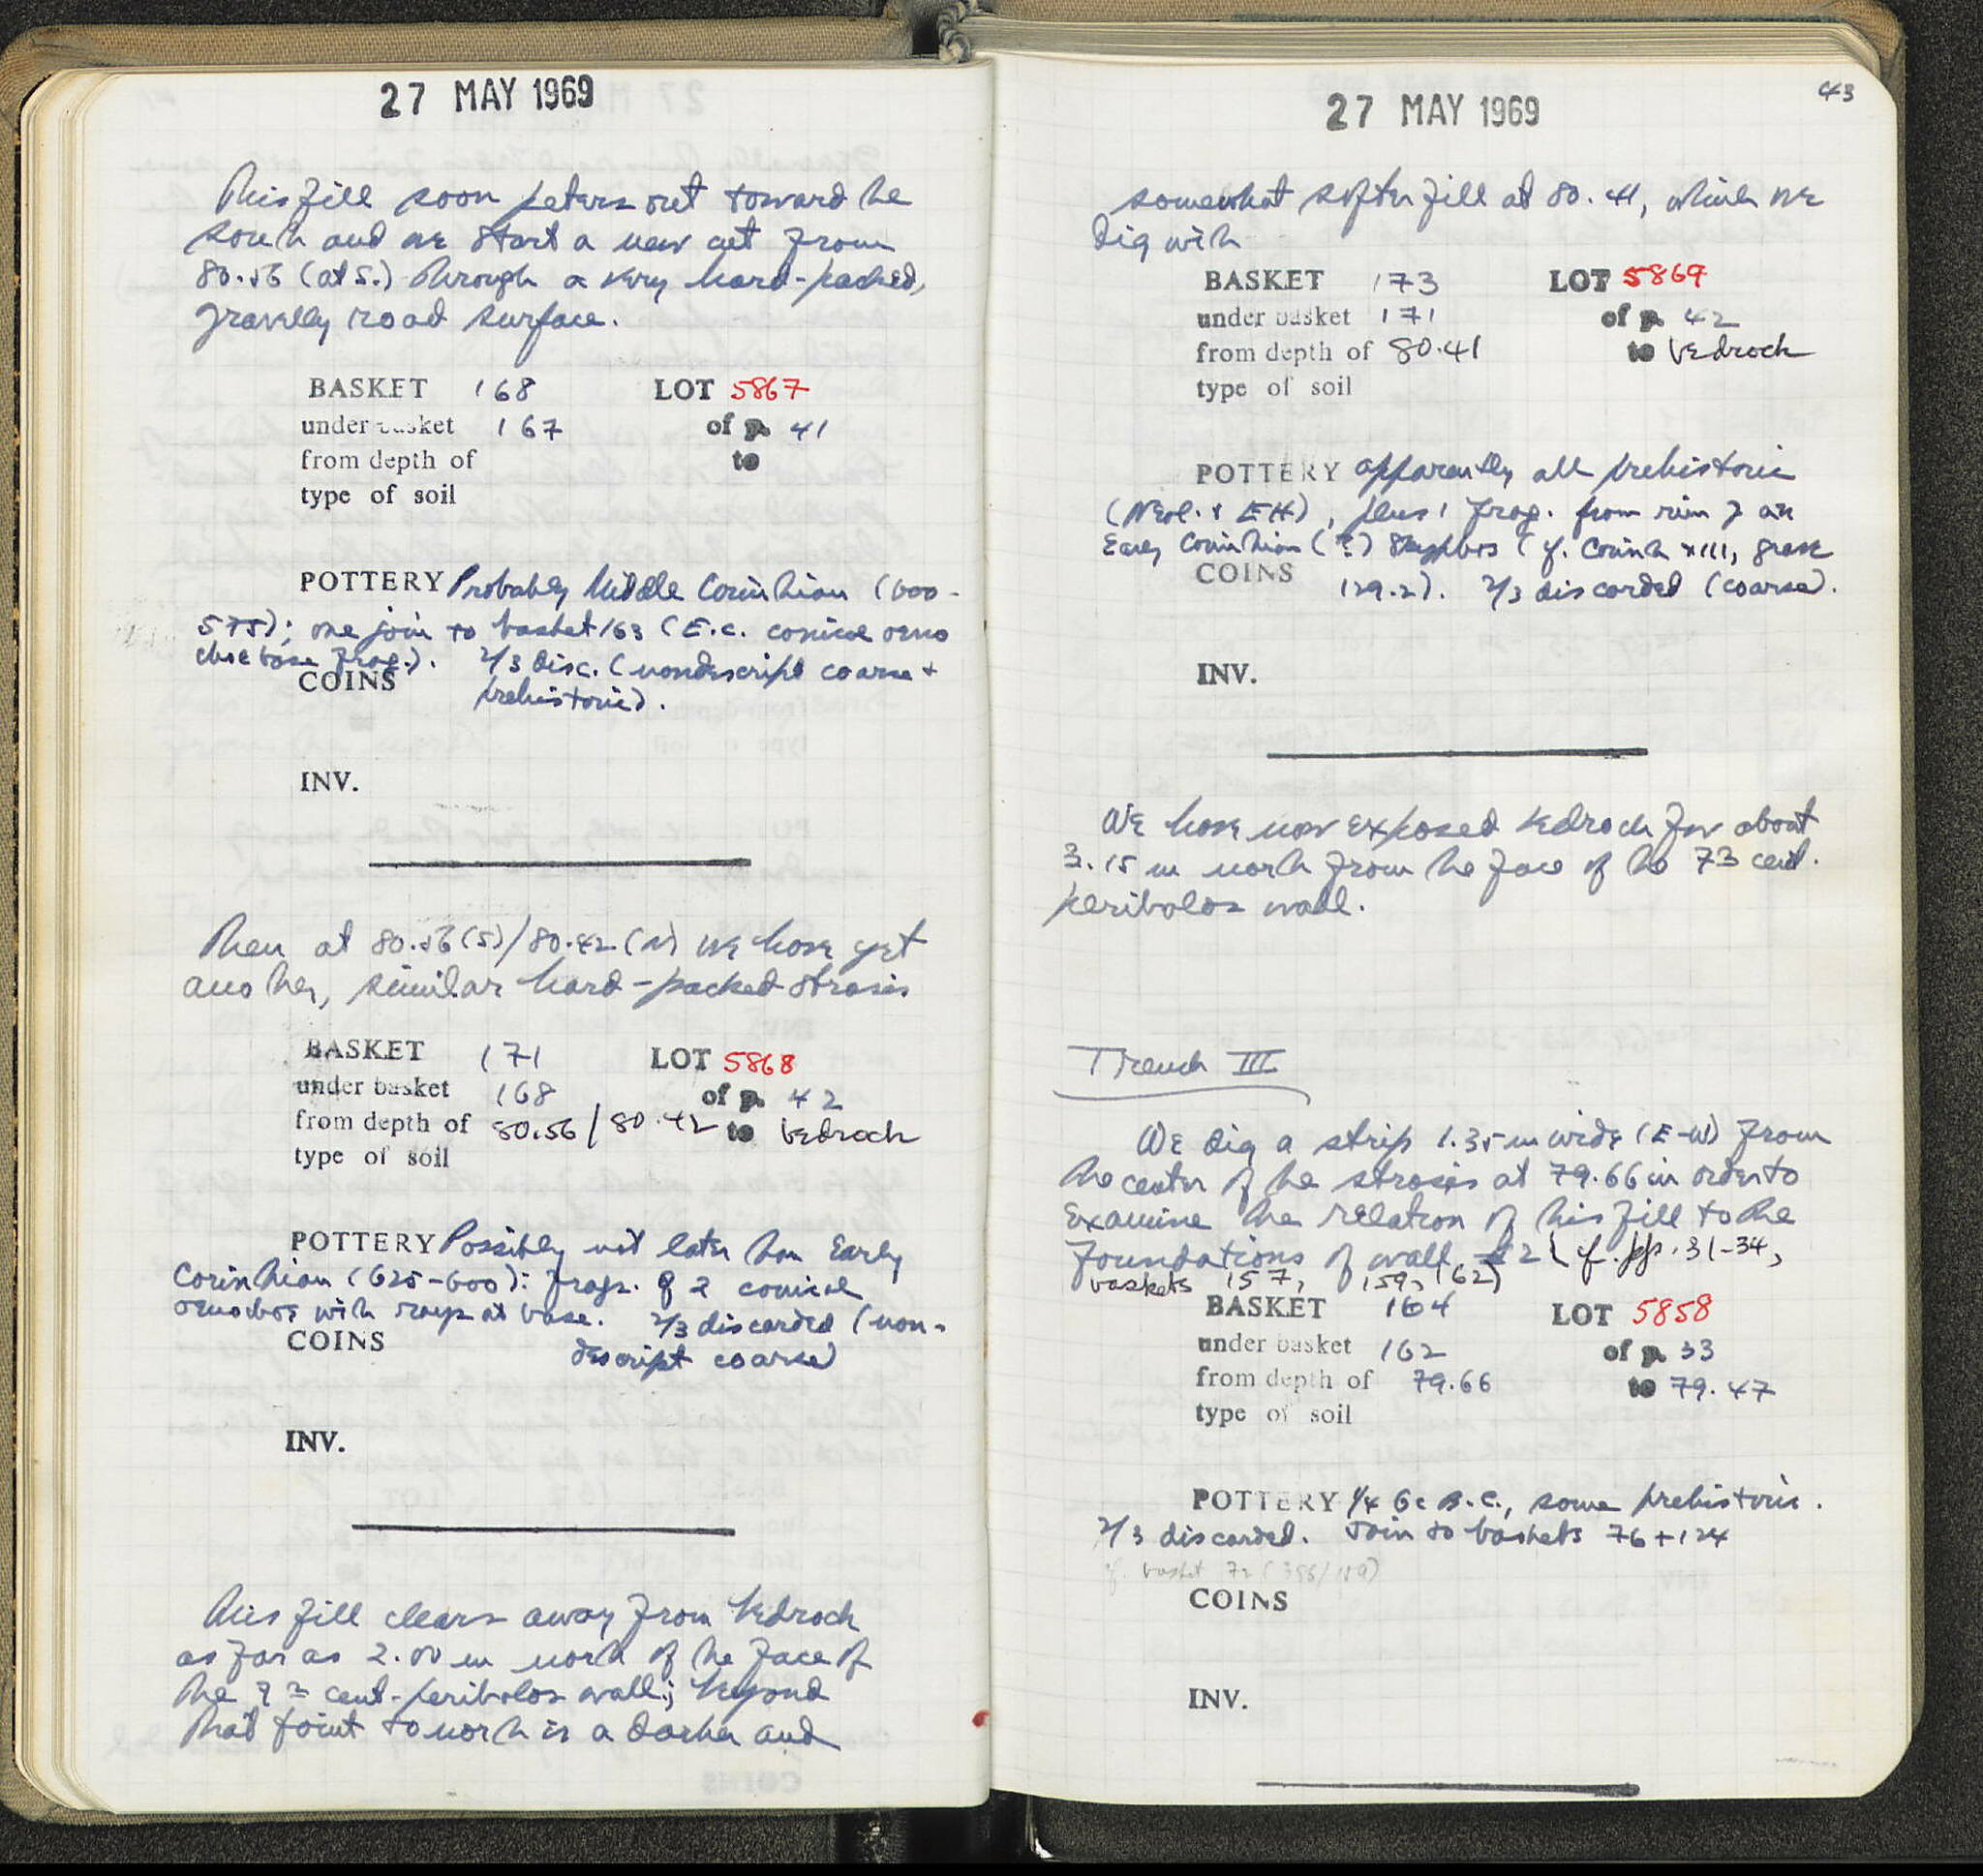 27 MAY 1969
This fill soon peters out toward the
south and we start a new cut from
80.56 (at S.) through a very hard-packed,
gravelly road surface.
BASKET 168 LOT 5867
under basket 167 of p. 41
from depth of to
type of soil
POTTERY Probably Middle Corinthian (600-
575); one join to basket 163 (E.C. conical oeno
choe base frag.). 2/3 disc. (nondescript coarse +
COINS prehistoric).
INV.
Then at 80.56 (S)/80.42 (N) we have yet
another, similar hard-packed strosis
BASKET 171 LOT 5868
under basket 168 of p. 42
from depth of 80.56/80.42 to bedrock
type of soil
POTTERY Possibly not later than Early
Corinthian (625-600): frags. of 2 conical
oenochoe with rays at base. 2/3 discarded (non-
COINS descript coarse)
INV.
This fill clears away from bedrock
as far as 2.00 m north of the face of
the cent. peribolos wall; beyond
that point to north is a darker and
43
27 MAY 1969
somewhat softer fill at 80.41, which we
dig with
BASKET 173 LOT 5869
under basket 171 of p. 42
from depth of 80.41 to bedrock
type of soil
POTTERY apparently all prehistoric
(Neol. + EH), plus 1 frag. from rim of an
Early Corinthian (?) skyphos (cf. Corinth XIII, grave
COINS 129.2). 2/3 discarded (coarse).
INV.
We have now exposed bedrock for about
3.15 m north from the face of the cent.
peribolos wall.
Trench III
We dig a strip 1.35 m wide (E-W) from
the center of the strosis at 79.66 in order to
examine the relation of this fill to the
foundations of wall 2 (cf. pp. 31-34,
baskets 157, 159, 162)
BASKET 164 LOT 5858
under basket 162 of p. 33
from depth of 79.66 to 79.47
type of soil
POTTERY 1/4 6c B.C., some prehistoric.
2/3 discarded. Join to baskets 76+124
cf. basket 72
COINS
INV.